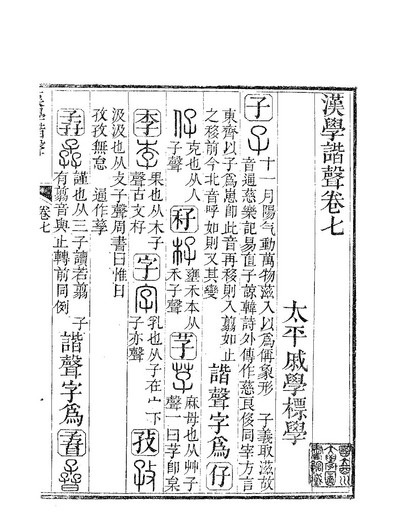 漢學諧聲卷七
太平戚學標學
子 子 十一月陽气動萬物滋入以爲偁象形 子義取滋故
音通慈樂記易直子諒韓詩外傳作慈良俊同宰方言
東齊以子爲崽卽此音再移則入翦如止
之移前今北音呼如則又其變
諧聲字爲 仔
仔 克也从人
子聲
秄 秄 壅禾本从
禾子聲
芓 芓 麻母也从艸子
聲一曰芓卽枲
李 李 果也从木子
聲古文杍
字 字 乳也从子在宀下
子亦聲
孜 孜
汲汲也从支子聲周書曰惟日
孜孜無怠 通作孳
孨 孨 謹也从三子讀若翦 子
有翦音與止轉前同例
諧聲字爲 孴 孴
卷七